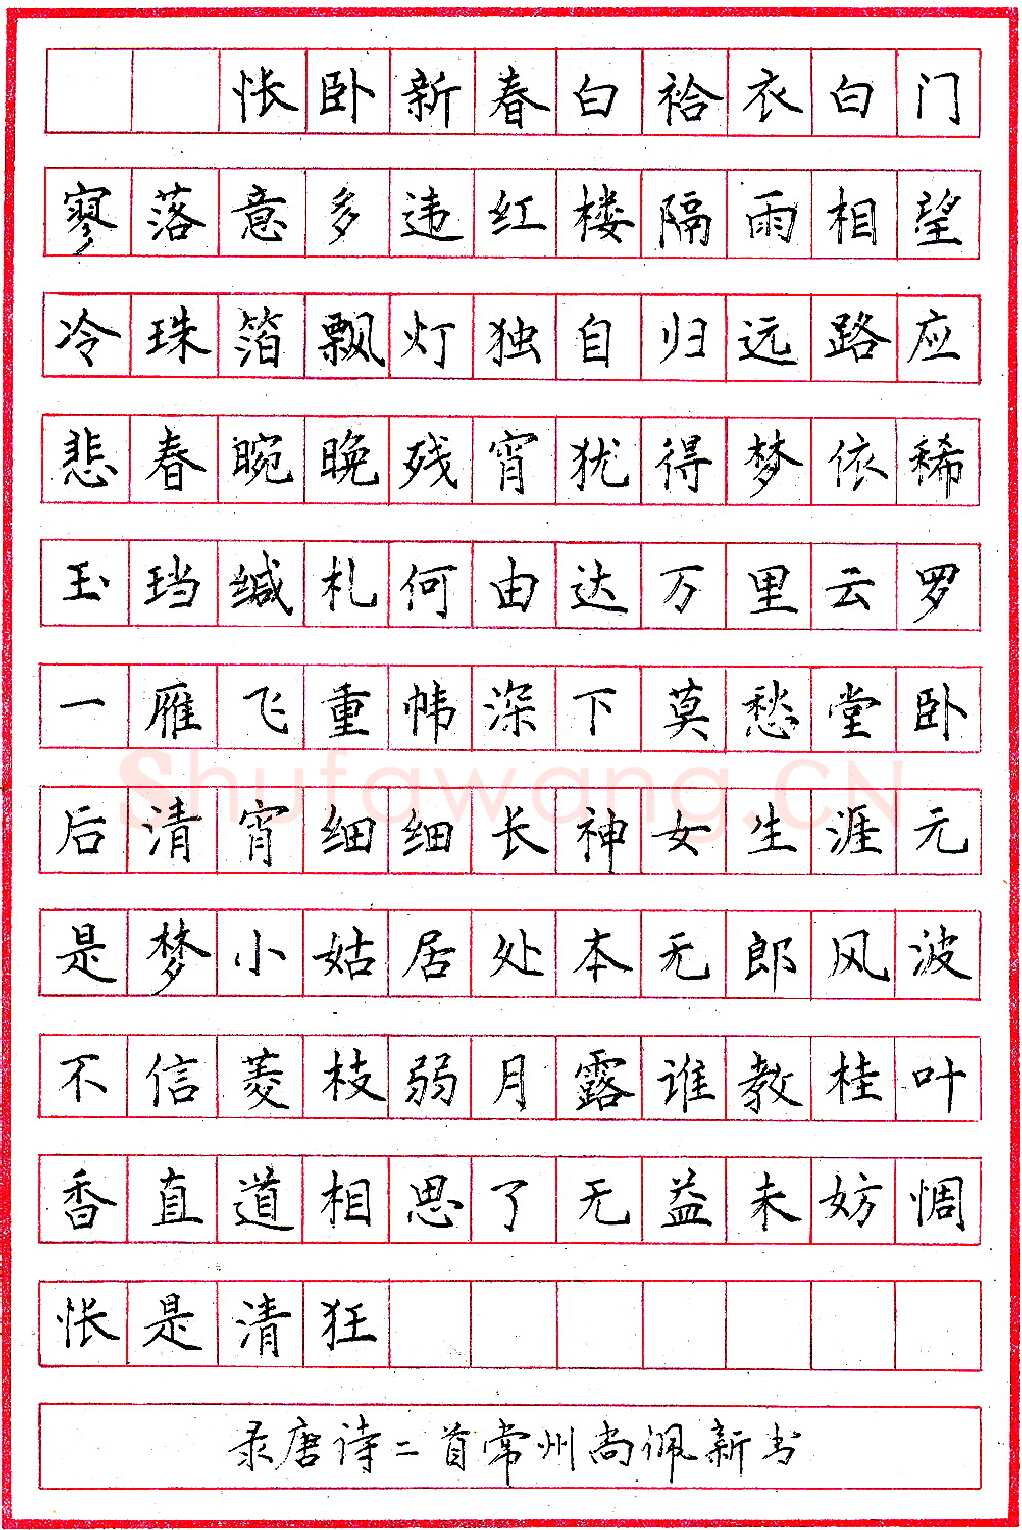 怅卧新春白袷衣白门
寥落意多违红楼隔雨相望
冷珠箔飘灯独自归远路应
悲春晼晚残宵犹得梦依稀
玉珰缄札何由达万里云罗
一雁飞重帏深下莫愁堂卧
后清宵细细长神女生涯元
是梦小姑居处本无郎风波
不信菱枝弱月露谁教桂叶
香直道相思了无益未妨惆
怅是清狂
录唐诗二首常州尚佩新书
Shufawang.CN